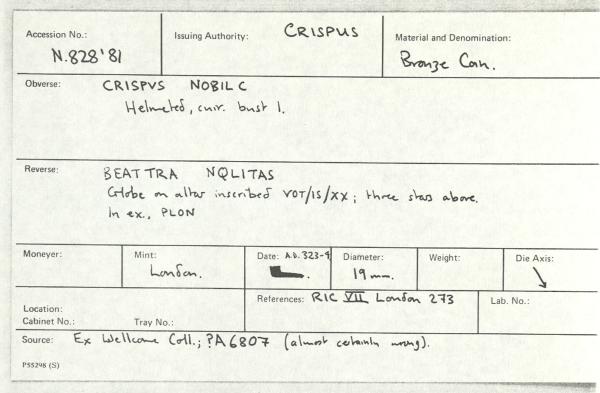 Accession No.: N.828'81
Issuing Authority: CRISPUS
Material and Denomination: Bronze Coin.
Obverse: CRISPVS NOBIL C
Helmeted, cuir. bust l.
Reverse: BEAT TRA NQLITAS
Globe on altar inscribed VOT/IS/XX; three stars above.
In ex., PLON
Moneyer:
Mint: London.
Date: A.D. 323-4
Diameter: 19 mm.
Weight:
Die Axis: ↘
Location:
Cabinet No.: Tray No.:
References: RIC VII London 273
Lab. No.:
Source: Ex Wellcome Coll.; ?A6807 (almost certainly wrong).
P55298 (S)